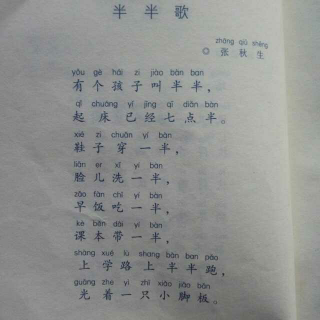 半半歌
zhāng qiū shēng
◎张秋生
yǒu gè hái zi jiào bàn ban
有个孩子叫半半，
qǐ chuáng yǐ jīng qī diǎn bàn
起床已经七点半。
xié zi chuān yí bàn
鞋子穿一半，
liǎn er xǐ yí bàn
脸儿洗一半，
zǎo fàn chī yí bàn
早饭吃一半，
kè běn dài yí bàn
课本带一半，
shàng xué lù shang bàn ban pǎo
上学路上半半跑，
guāng zhe yì zhī xiǎo jiǎo bǎn
光着一只小脚板。